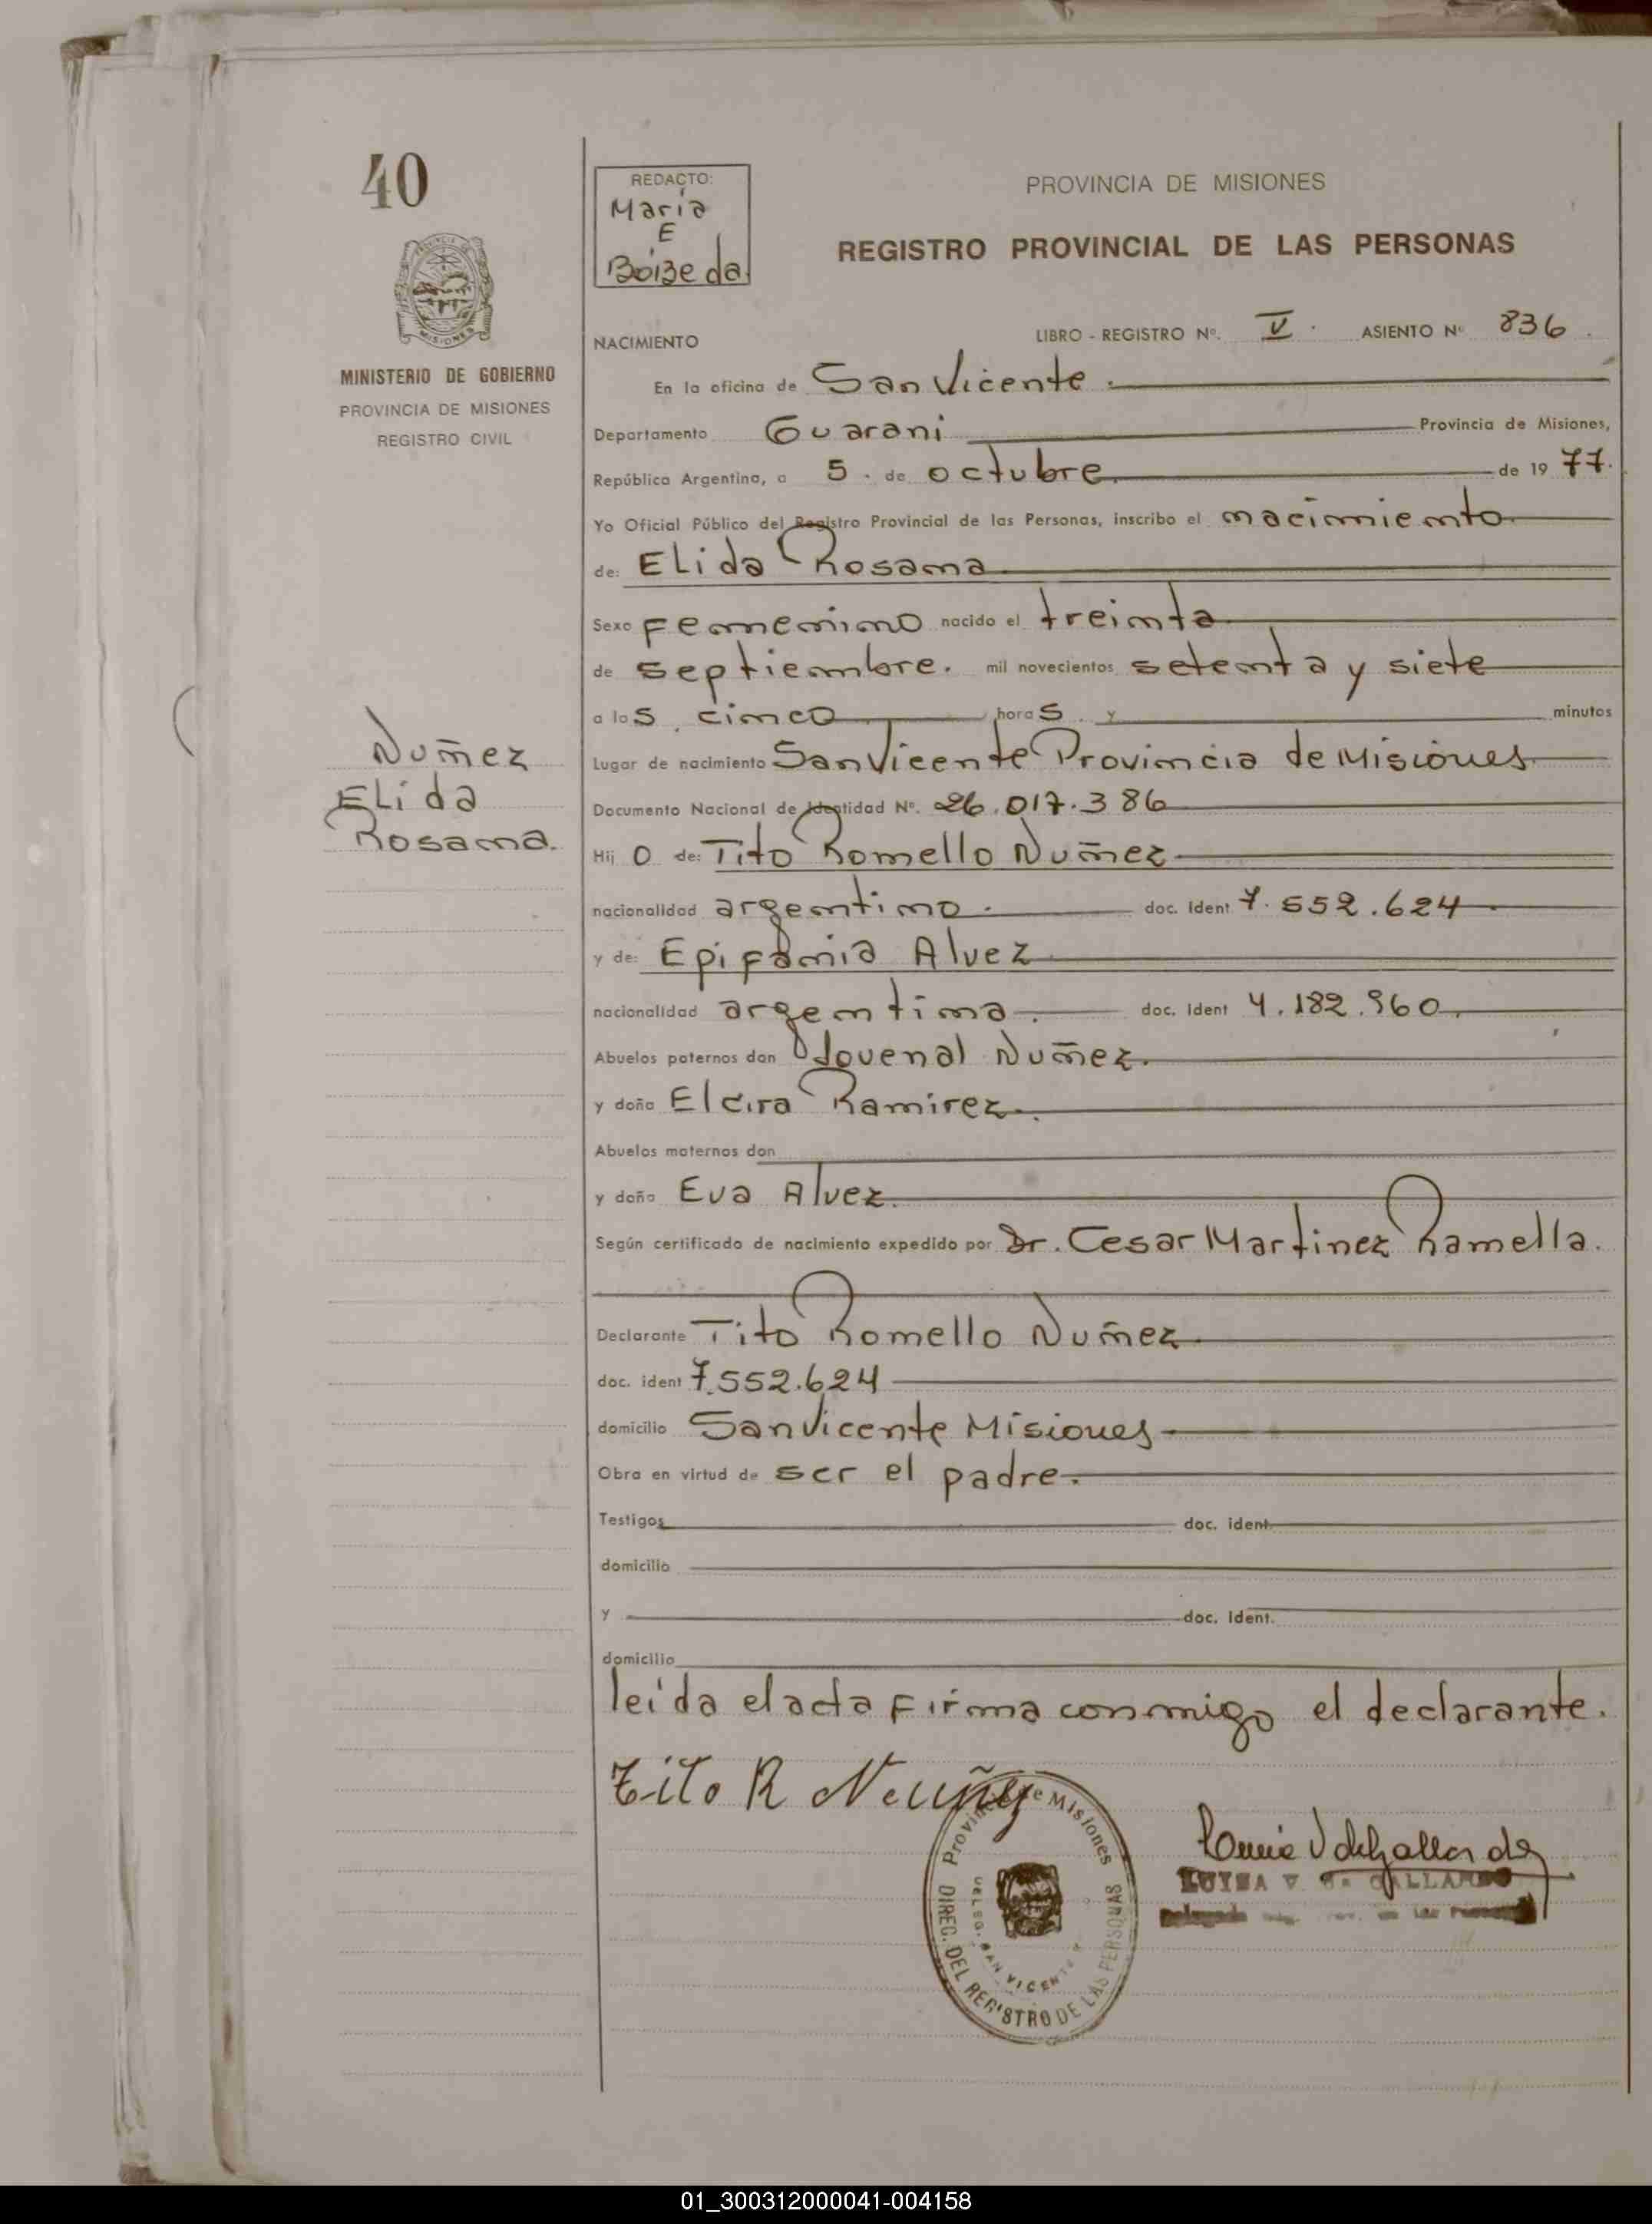 40
MINISTERIO DE GOBIERNO
PROVINCIA DE MISIONES
REGISTRO CIVIL
Nuñez
Elida
Rosana.
REDACTO:
Maria
E
Boizeda
PROVINCIA DE MISIONES
REGISTRO PROVINCIAL DE LAS PERSONAS
NACIMIENTO LIBRO - REGISTRO Nº. V. ASIENTO Nº 836.
En la oficina de San Vicente.
Departamento Guarani Provincia de Misiones,
República Argentina, a 5. de octubre de 1977.
Yo Oficial Público del Registro Provincial de las Personas, inscribo el nacimiento
de: Elida Rosana
Sexo femenino nacido el treinta
de septiembre. mil novecientos setenta y siete
a las cinco horas y minutos
Lugar de nacimiento San Vicente Provincia de Misiones
Documento Nacional de Identidad Nº. 26.017.386
Hijo de: Tito Romello Nuñez
nacionalidad argentino. doc. Ident 7.552.624
y de: Epifania Alvez
nacionalidad argentina. doc. Ident 4.182.960.
Abuelos paternos don Jouenal Nuñez.
y doña Elcira Ramirez.
Abuelos maternos don
y doña Eva Alvez.
Según certificado de nacimiento expedido por Dr. Cesar Martinez Ramella.
Declarante Tito Romello Nuñez
doc. ident 7.552.624
domicilio San Vicente Misiones
Obra en virtud de ser el padre.
Testigos doc. ident.
domicilio
y doc. Ident.
domicilio
leida el acta firma conmigo el declarante.
Tito R Nuñez
Provincia de Misiones
DIREC. DEL REGISTRO DE LAS PERSONAS
DELEG. SAN VICENTE
LUISA V. de GALLARDO
01_300312000041-004158